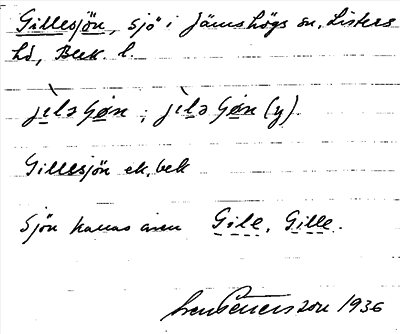 Gillesjön, sjö i Jämshögs sn, Listers
hd, Blek. l.
jìləʃøn ; jìləʃøn (y).
Gillesjön ek, bek
Sjön kallas även Gile, Gille.
Sven Petersson 1936